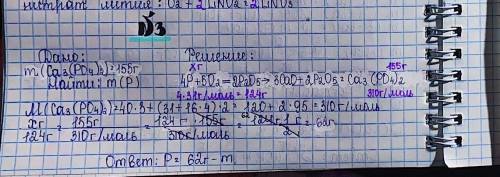 нитрат лития: O₂ + 2LiNO₂ = 2LiNO₃
№3
Дано: Решение:
m(Ca₃(PO₄)₂)=155г xг 155г
Найти: m(P) 4P+5O₂=2P₂O₅→3CaO+2P₂O₅=Ca₃(PO₄)₂
4·31г/моль=124г 310г/моль
M(Ca₃(PO₄)₂)=40·3+(31+16·4)·2=120+2·95=310г/моль
xг/124г = 155г/310г/моль = 124г·155г/310г/моль = 62 124г·1г/2 = 62г
Ответ: P= 62г - m